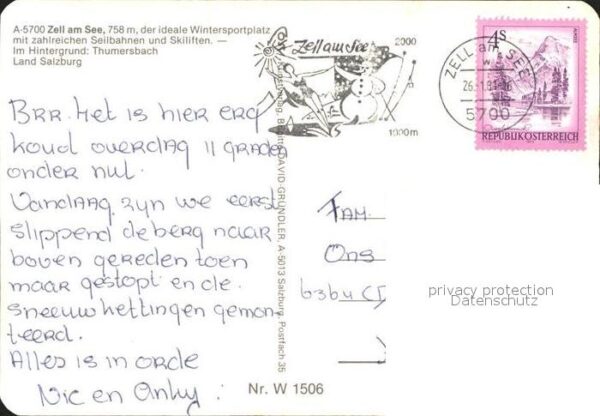 A-5700 Zell am See, 758 m, der ideale Wintersportplatz
mit zahlreichen Seilbahnen und Skiliften. —
Im Hintergrund: Thumersbach
Land Salzburg
Zell am See
2000
1000m
ZELL am SEE
26.-1.81-18
5700
4S
REPUBLIK ÖSTERREICH
Brr. Het is hier erg
koud overdag 11 graden
onder nul.
Vandaag zyn we eerst
slippend de berg naar
boven gereden toen
maar gestopt en de
sneeuwkettingen gemon-
teerd.
Alles is in orde
Nic en Anky.
DAVID-GRÜNDLER, A-5013 Salzburg, Postfach 35
Fam
Ons
6364 CJ
privacy protection
Datenschutz
Nr. W 1506